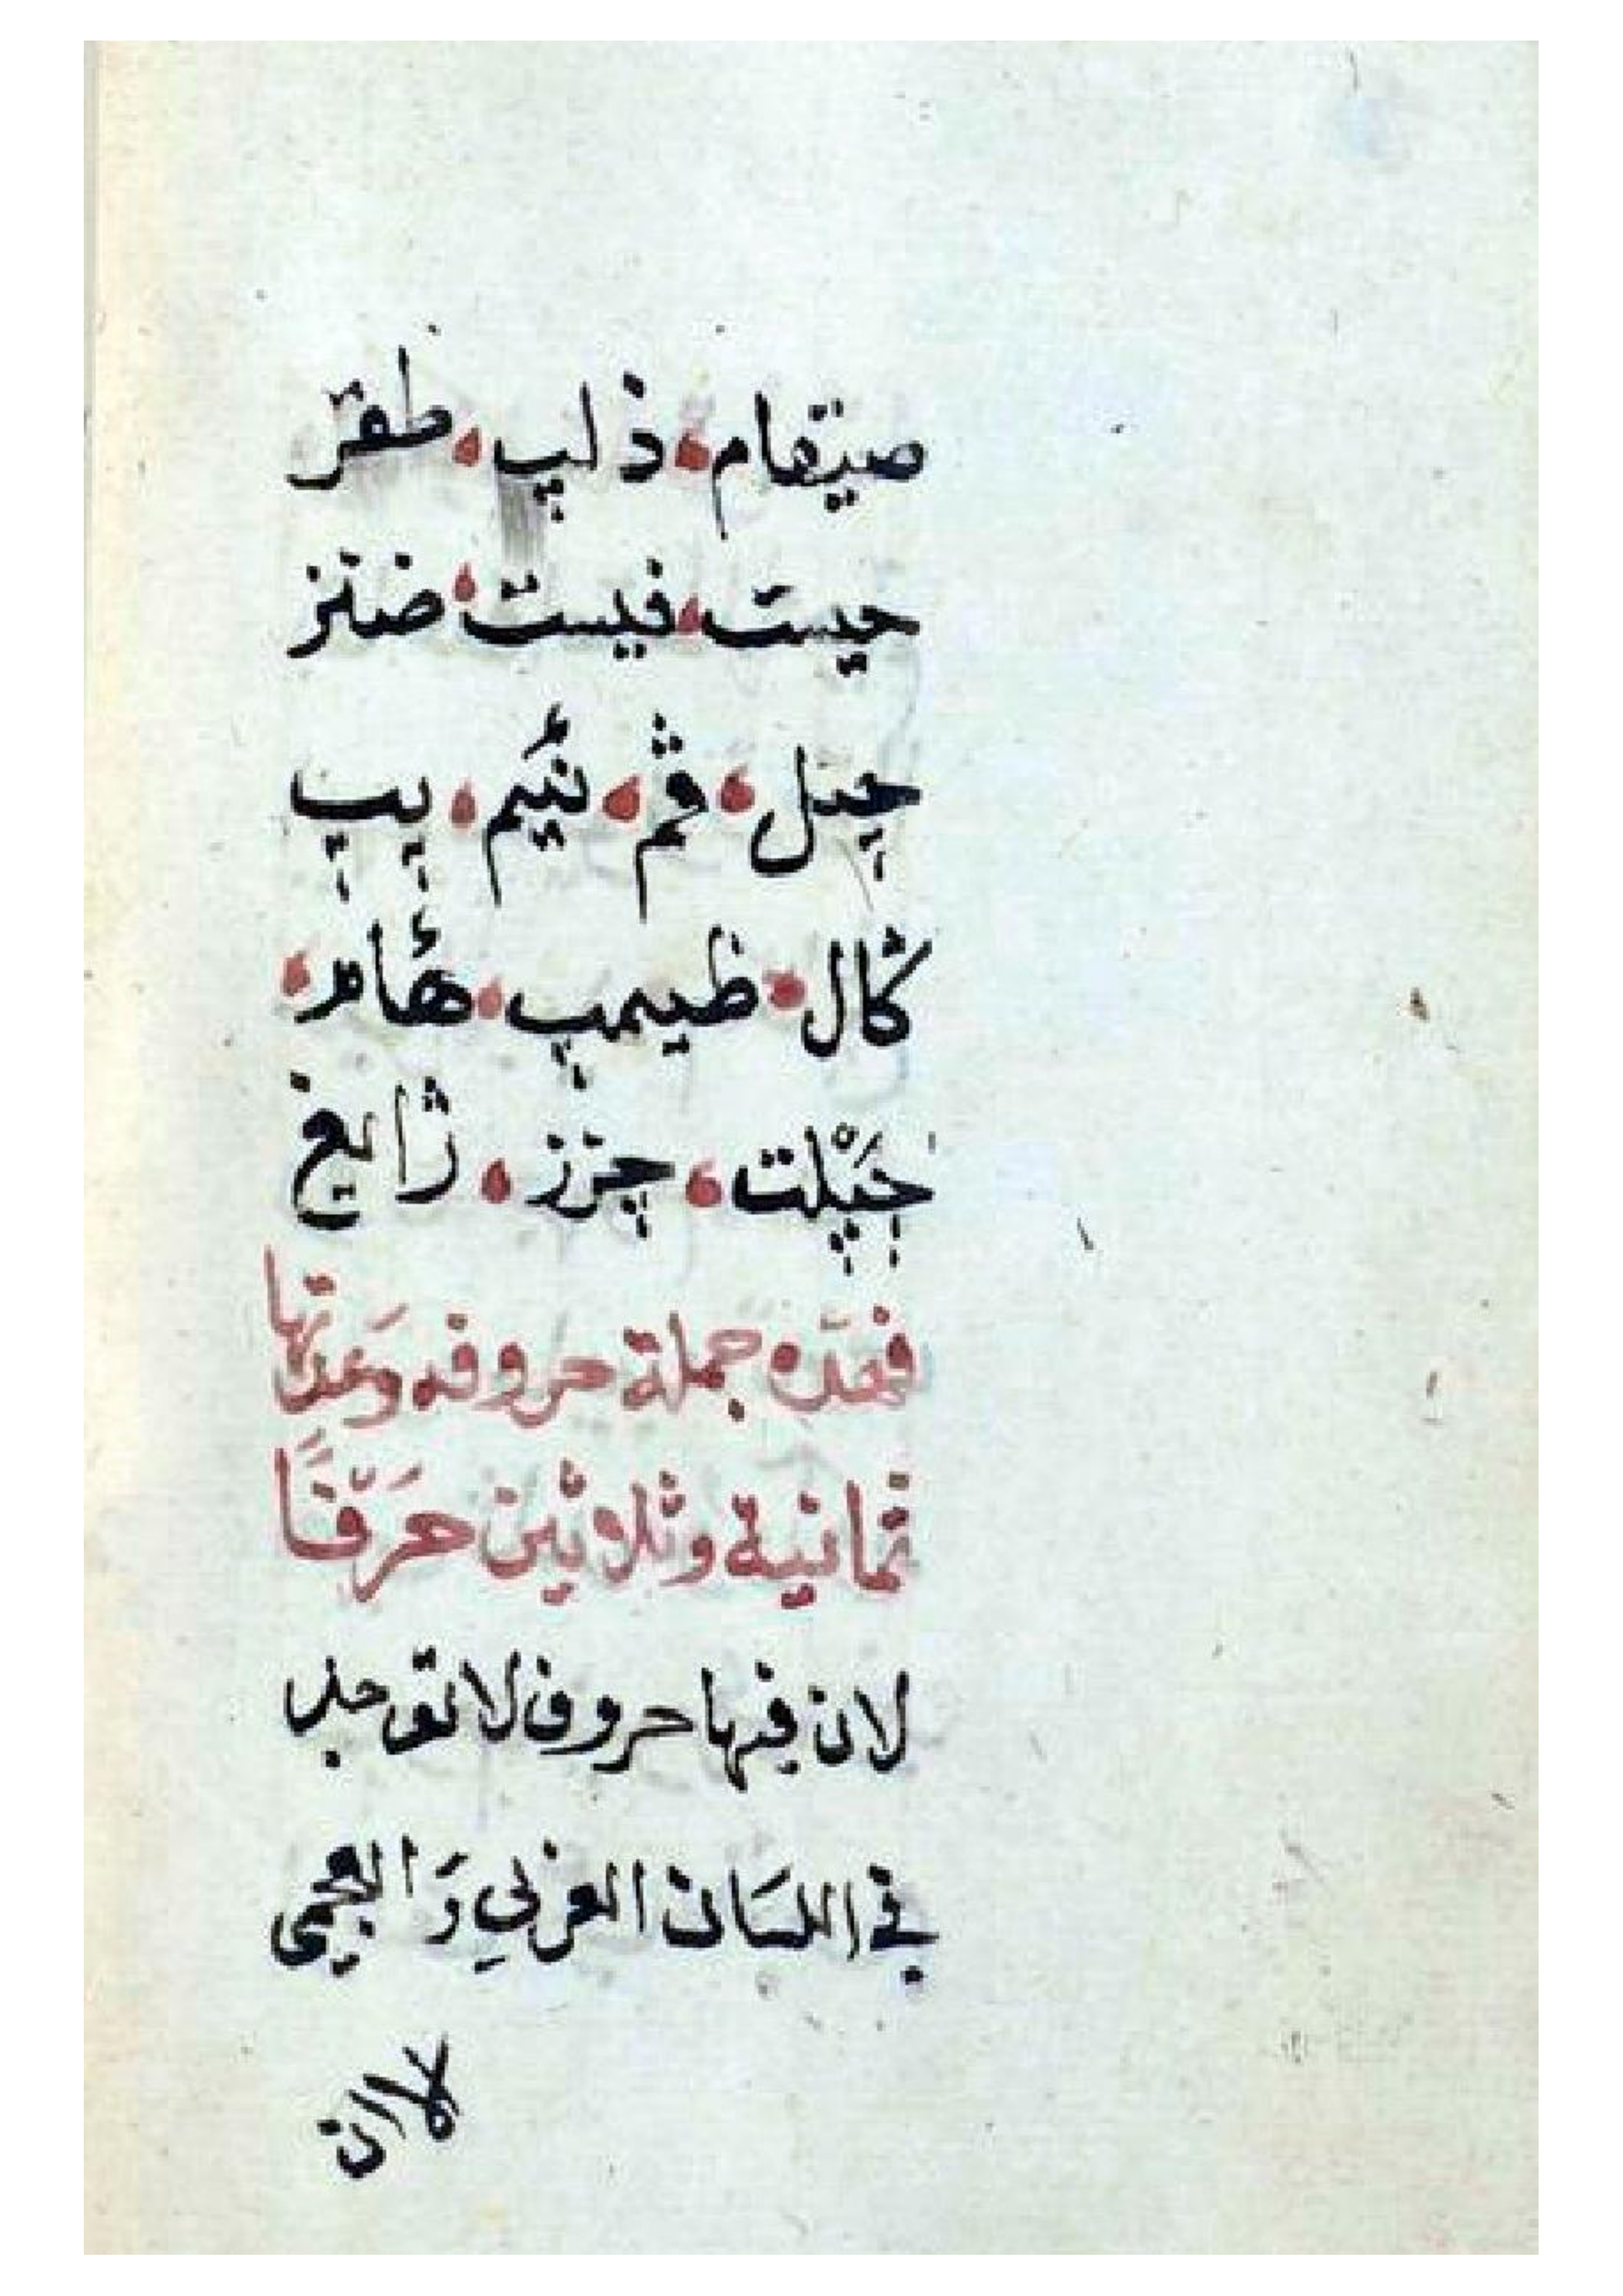 صيتفام، ذلپ، طفرّ
حيست، فيست، ضتز
چيل، ڨم، نئيم، پپ
کال، ظيمپ، هأم،
چَپْلت، چزز، ژايغ
فهذه جملة حروفه وعَدتها
ثمانية وثلاثين حَرّفًا
لان فيها حروف لا توجد
في اللسَان العربي وَالعجمي
لاان